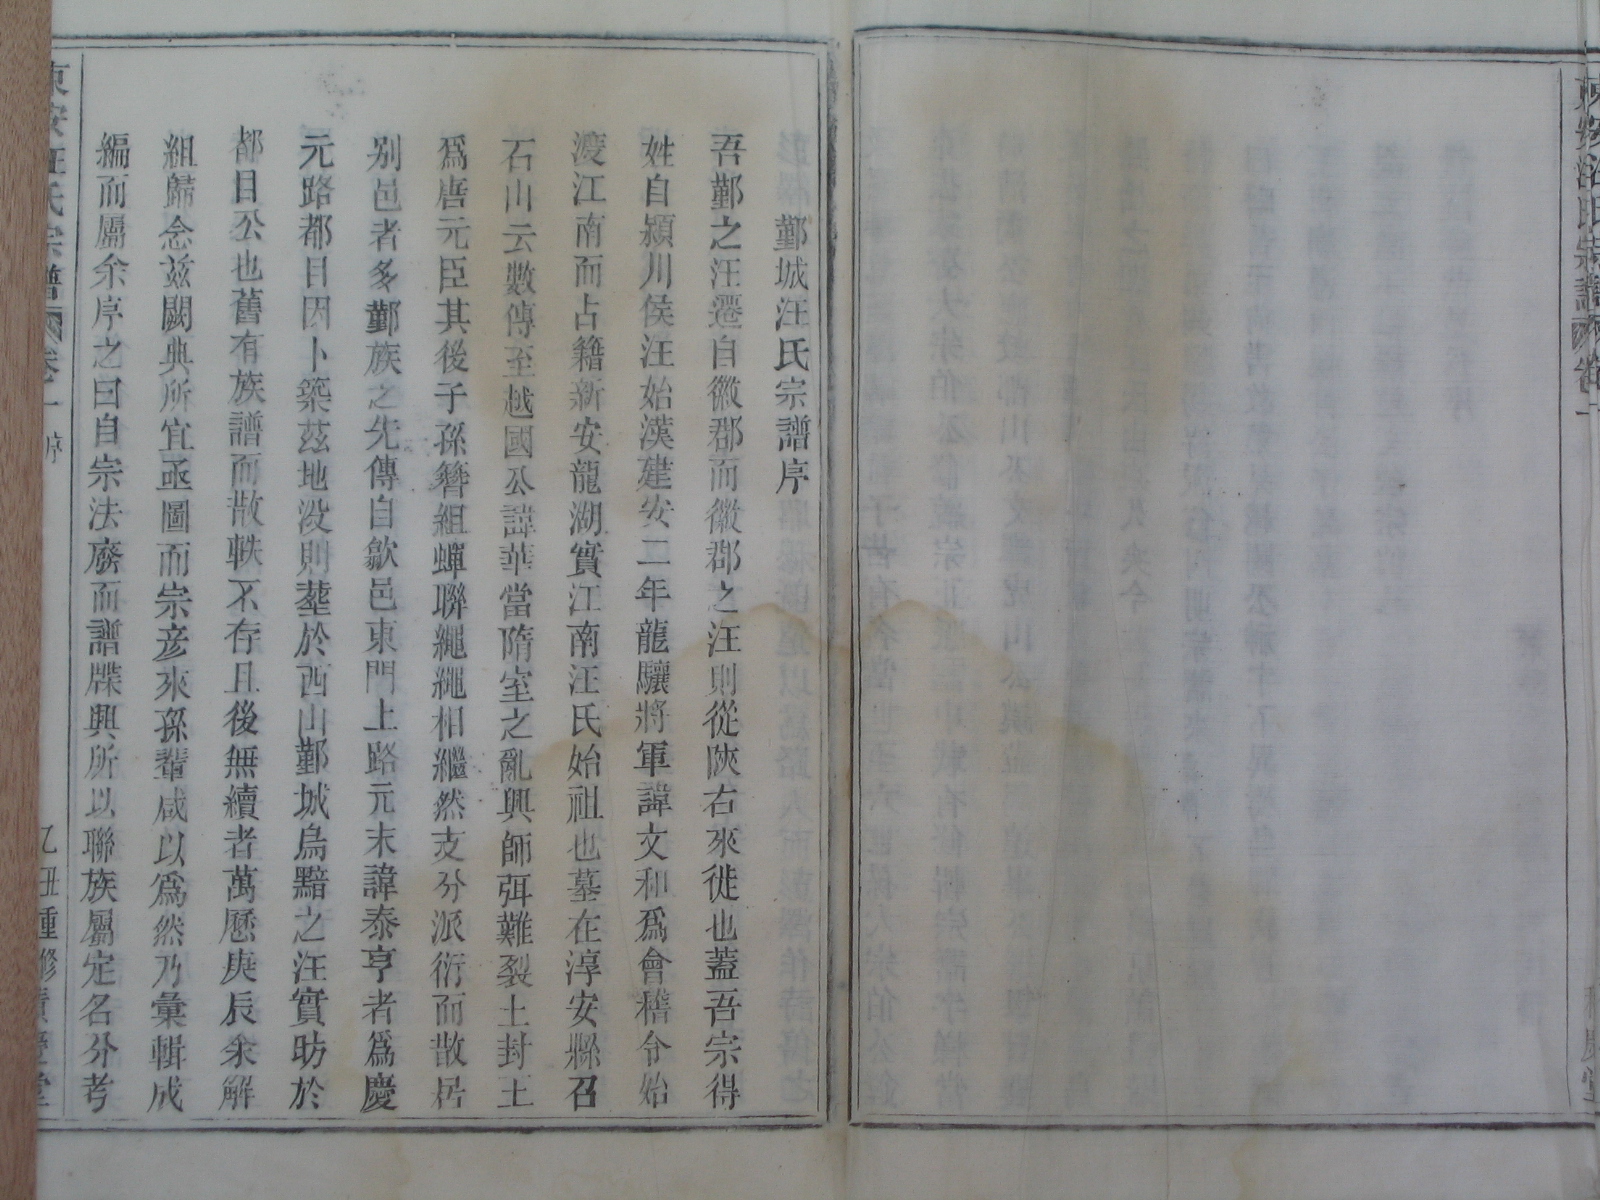 鄞城汪氏宗譜序
吾鄞之汪遷自徽郡而徽郡之汪則從陝右來徙也蓋吾宗得
姓自潁川侯汪始漢建安二年龍驤將軍諱文和爲會稽令始
渡江南而占籍新安龍湖實江南汪氏始祖也墓在淳安縣召
石山云數傳至越國公諱華當隋室之亂興師弭難裂土封王
爲唐元臣其後子孫簪組蟬聯繩繩相繼然支分派衍而散居
別邑者多鄞族之先傳自歙邑東門上路元末諱泰亨者爲慶
元路都目因卜築茲地没則塟於西山鄞城烏黯之汪實昉於
都目公也舊有族譜而散軼不存且後無續者萬曆庚辰余解
組歸念茲闕典所宜亟圖而宗彦來孫輩咸以爲然乃彙輯成
編而屬余序之曰自宗法廢而譜牒興所以聯族屬定名分考
東安汪氏宗譜 卷一 序 乙丑重修
東安汪氏宗譜 卷一